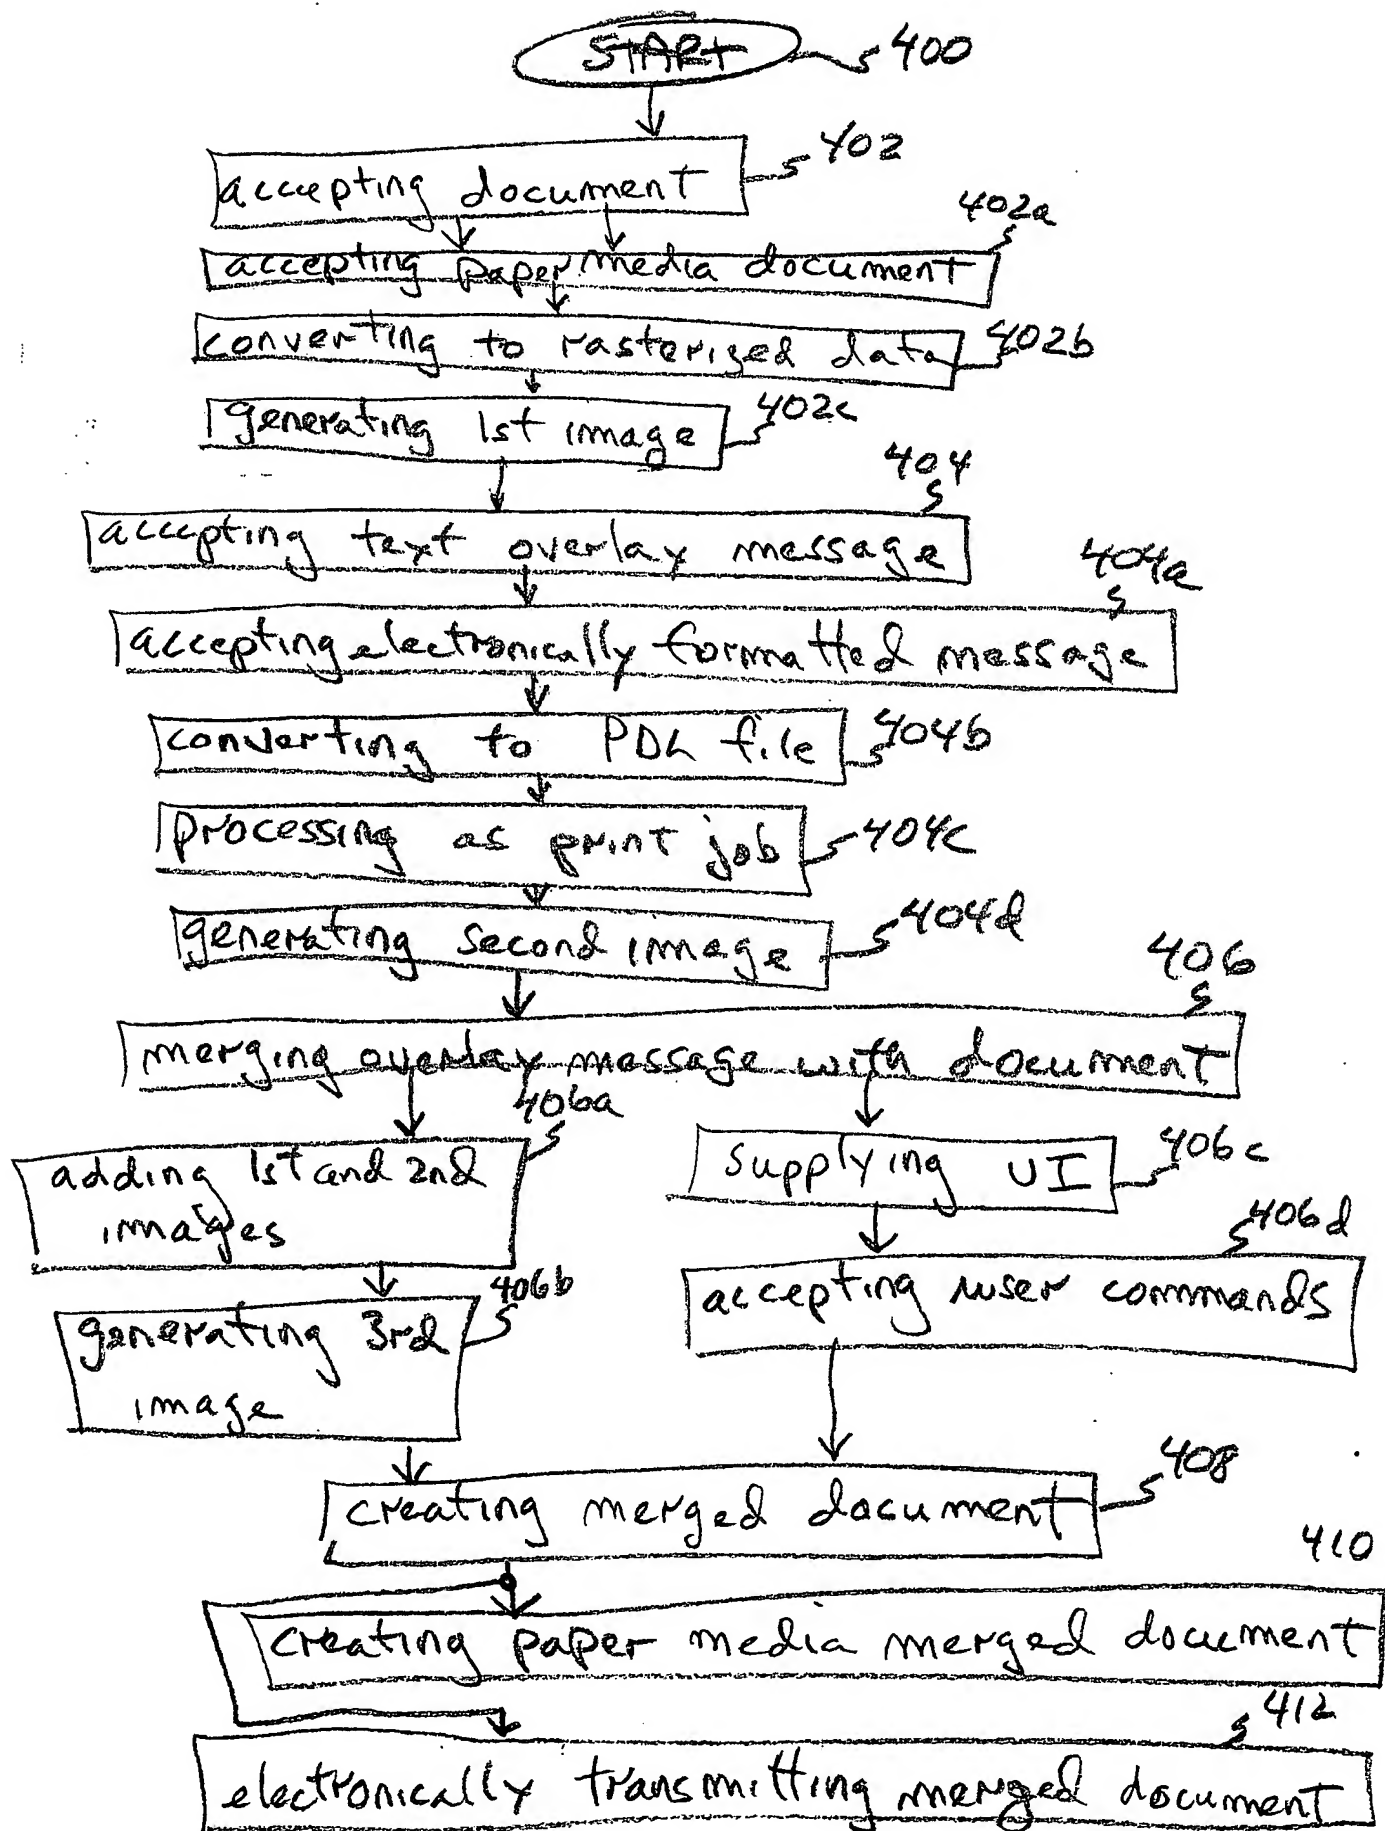 START 400
402
accepting document
402a
accepting paper media document
converting to rasterized data 402b
generating 1st image 402c
404
accepting text overlay message
404a
accepting electronically formatted message
converting to PDL file 404b
processing as print job 404c
generating second image 404d
406
merging overlay message with document
406a
adding 1st and 2nd
images
supplying UI 406c
406d
406b
generating 3rd
image
accepting user commands
408
creating merged document
410
creating paper media merged document
412
electronically transmitting merged document